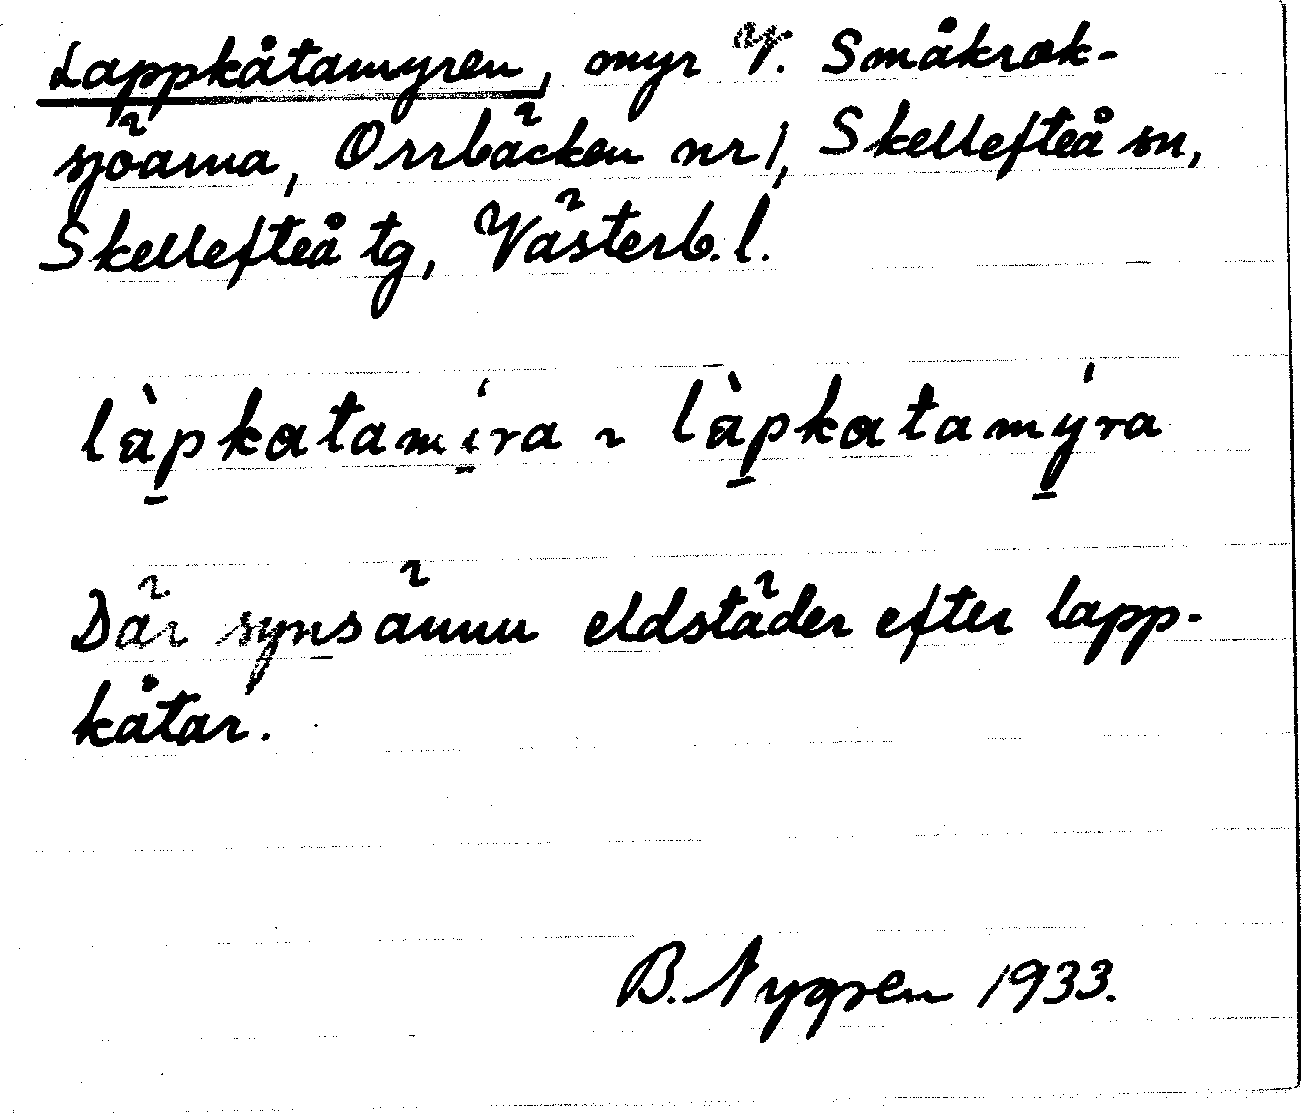 Lappkåtamyren, myr av V. Småkrok-
sjöarna, Orrbäcken nr 1, Skellefteå sn,
Skellefteå tg, Västerb. l.
là̱pkatamí̱ra ~ là̱pkatamý̱ra
Där syns ännu eldstäder efter lapp-
kåtar.
B. Nygren 1933.